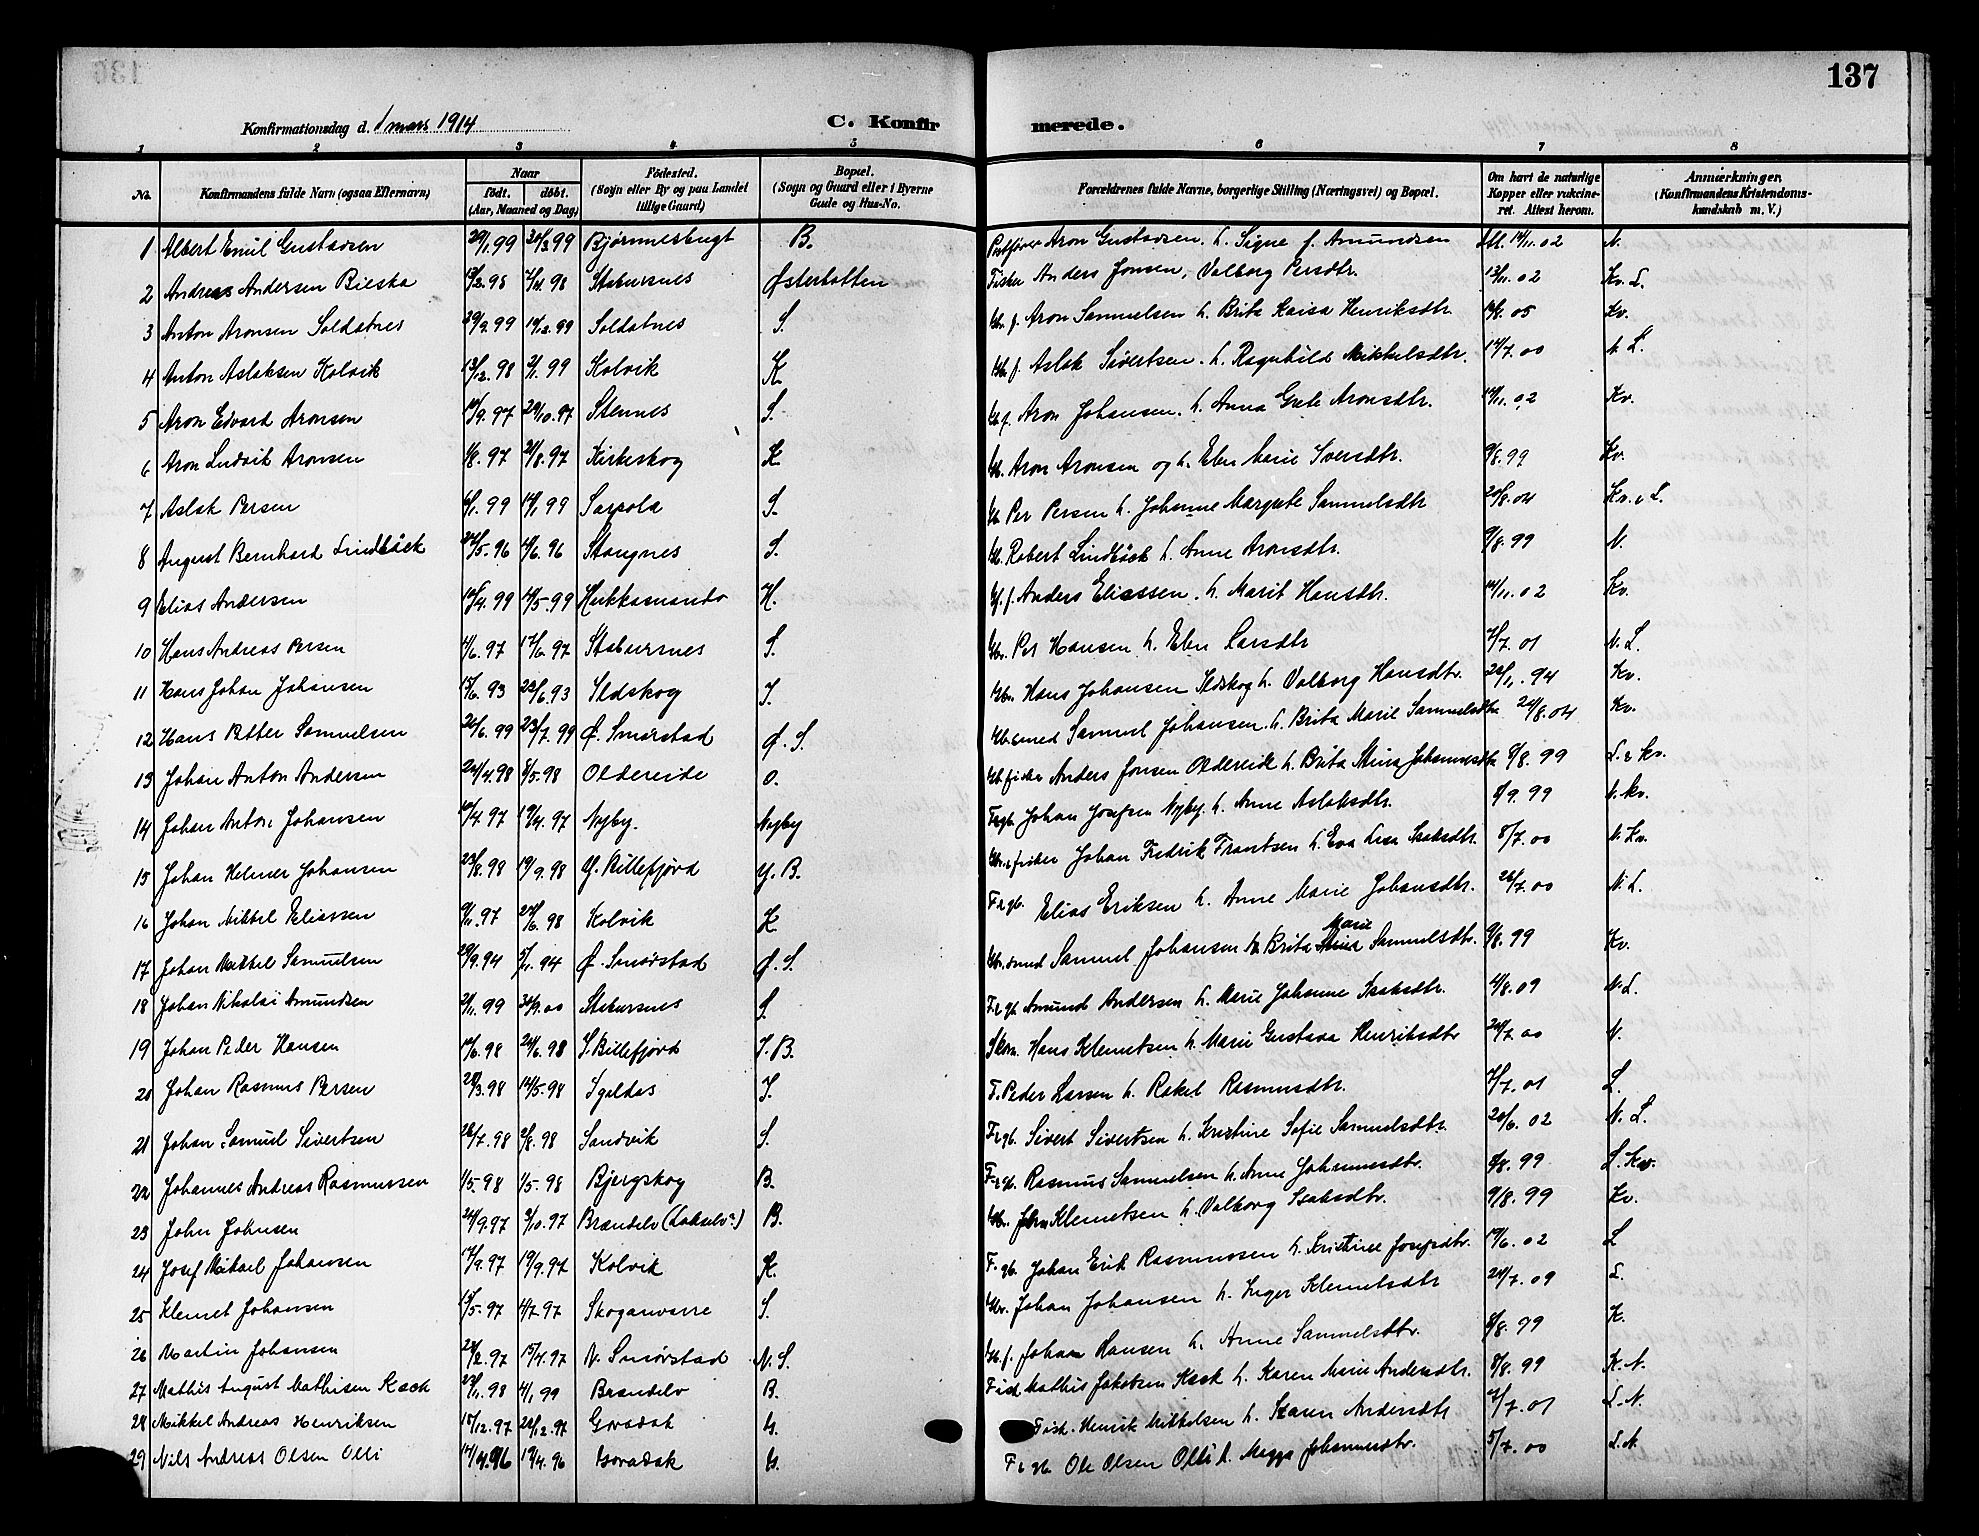 137
Konfirmationsdag d. 1 mars 1914
C. Konfirmerede.
1 2 3 4 5 6 7 8
No. Konfirmandens fulde Navn (ogsaa Efternavn) Naar født. døbt. (Aar, Maaned og Dag) Fødested. (Sogn eller By og paa Landet tillige Gaard) Bopæl. (Sogn og Gaard eller i Byerne Gade og Hus-No. Forældrenes fulde Navne, borgerlige Stilling (Næringsvei) og Bopæl. Om havt de naturlige Kopper eller vakcineret. Attest herom. Anmærkninger, (Konfirmandens Kristendomskundskab m. V.)
1 Albert Emil Gustavsen 29/1.99 30/3 99 Bjørnnesbugt B. Postfører Aron Gustavsen. h. Signe f. Amundsen 14/11.02 N.
2 Andreas Andersen Bieska 13/2.98 98 Stabursnes Østerbotten Fisker Anders Jonsen, Valborg Persdtr. 13/11.02 Kv. L.
3 Anton Aronsen Soldatnes 29/9.99 19/12.99 Soldatnes S. Aron Samuelsen h. Brita Kaisa Henriksdtr. 05 Kv.
4 Anton Aslaksen Kolvik 13/12.98 2/1.99 Kolvik K Aslak Sivertsen. h. Ragnhild Mikkelsdtr. 14/7.00 N L.
5 Aron Edvard Aronsen 9.97 29/10.97 Stennes S. Aron Johansen. h. Anna Grete Aronsdtr. 14/11.02 Kv.
6 Aron Ludvik Aronsen 1/8.97 21/8.97 Kirkeskog K Aron Aronsen og h. Ellen Marie Iversdtr. 9/8.99 Kv.
7 Aslak Persen 6/1.99 14/1 99 Sarvola S. Per Persen h. Johanne Margrete Samuelsdtr 20/8.04 Kv. L.
8 August Bernhard Lindbäck 24/5.96 4/6.96 Stangnes S. Robert Lindbäck h. Anne Aronsdtr. 9/8.99 N.
9 Elias Andersen 14/4.99 14/5.99 H. Anders Eliassen. h. Marit Hansdtr. 14/11.02 Kv.
10 Hans Andreas Persen 6.97 17/6.97 Stabursnes S. Per Hansen h. Ellen Larsdtr 7/7.01 N. L.
11 Hans Johan Johansen 15/6.93 23/6.93 Ildskog I. Hans Johansen Ildskog h. Valborg Hansdtr. 22/11.94 Kv.
12 Hans Petter Samuelsen 26/6.99 23/7.99 Ø. Smørstad Ø. S. Samuel Johansen. h. Brita Marie Samuelsdtr 24/8.04 Kv.
13 Johan Anton Andersen 24/4.98 8/5.98 Oldereide O. Anders Jonsen Oldereide h. Brita Stina Johannesdtr 9/8.99 L. Kv.
14 Johan Anton Johansen 10/4.97 19/4.97 Nyby. Nyby Johan Josefsen Nyby. h. Anne Aslaksdtr. 9.99 N. Kv.
15 Johan Helmer Johansen 23/8.98 19/9.98 Y. Billefjord Y. B. Johan Fredrik Frantsen h. Eva Lisa Isaksdtr. 8/7.00 N. Kv.
16 Johan Mikkel Eliassen 9/11.97 6.98 Kolvik K F. gb. Elias Eriksen h. Anne Marie Johansdtr. 26/7.00 N. L.
17 Johan Mikkel Samuelsen 29/9.94 5/11.94 Ø. Smørstad Ø. S. Samuel Johansen h Brita Marie Samuelsdtr. 9/8.99 Kv.
18 Johan Nikolai Amundsen 2/11.99 30/9.00 Stabursnes S. Amund Andersen h. Marie Johanne Isaksdtr. 4/8.09 N. L.
19 Johan Peder Hansen 14/6.98 24/6.98 I. Billefjord I. B. Skom. Hans Klemetsen h. Marie Gustava Henriksdtr 24/7.00 N.
20 Johan Rasmus Persen 28/3.98 14/5.98 Igeldas I. F. Peder Larsen h. Rakel Rasmusdtr. 7/7.01 L
21 Johan Samuel Sivertsen 26/7.98 2/8.98 Sandvik S. Sivert Sivertsen h. Kristine Sofie Samuelsdtr. 20/6.02 N. L.
22 Johannes Andreas Rasmussen 1/5.98 1/5.98 Bjergskog B. Rasmus Samuelsen h. Anne Johannesdtr. 9/8.99 L. Kv.
23 John Johnsen 24/9.97 3/10.97 Brændelv (Lakselv?) B. John Klemetsen h. Valborg Isaksdtr. 9/8.99 Kv.
24 Josef Mikael Johansen 17/9.97 19/9.97 Kolvik K. Johan Erik Rasmussen h. Kristine Josefsdtr. 19/6.02 L
25 Klemet Johansen 13/5.97 4/7.97 Skoganvarre S. Johan Johansen h. Inger Klemetsdtr 24/7.09 L.
26 Martin Johansen 28/2.97 15/4.97 N. Smørstad N. S. Johan Hansen h. Anne Samuelsdtr. 9/8.99 K.
27 Mathis August Mathisen Kack 23/11.98 4/1 99 Brændelv B. Mathis Jakobsen Kack h. Karen Marie Andersdtr. 8/8.99 K. N.
28 Mikkel Andreas Henriksen 15/12.97 24/12.97 Goradak G. Fisk. Henrik Mikkelsen h. Karen Andersdtr 7/7.01 L. N.
29 Nils Andreas Olsen Olli 14/4.96 19/4.96 Goradak G. Ole Olsen Olli h. Magga Johannesdtr. 5/7.00 L. N.